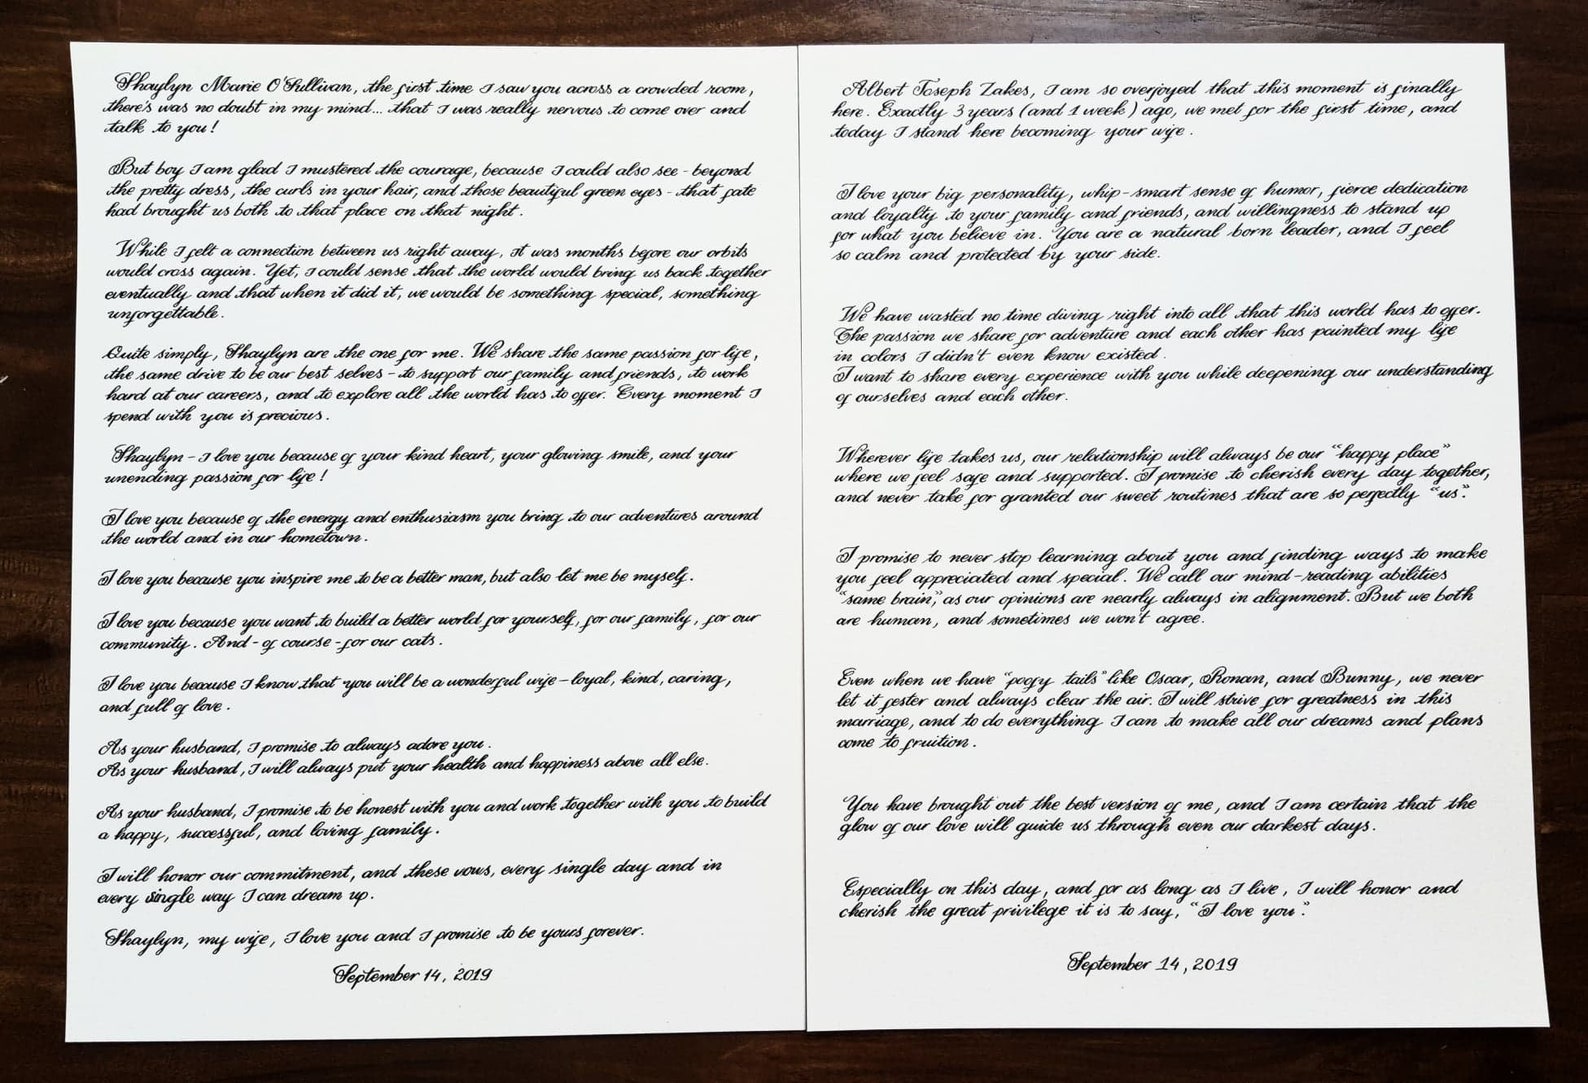 Shaylyn Marie O'Sullivan, the first time I saw you across a crowded room,
there's was no doubt in my mind... that I was really nervous to come over and
talk to you!
But boy I am glad I mustered the courage, because I could also see - beyond
the pretty dress, the curls in your hair, and those beautiful green eyes - that fate
had brought us both to that place on that night.
While I felt a connection between us right away, it was months before our orbits
would cross again. Yet, I could sense that the world would bring us back together
eventually and that when it did it, we would be something special, something
unforgettable.
Quite simply, Shaylyn are the one for me. We share the same passion for life,
the same drive to be our best selves - to support our family and friends, to work
hard at our careers, and to explore all the world has to offer. Every moment I
spend with you is precious.
Shaylyn - I love you because of your kind heart, your glowing smile, and your
unending passion for life!
I love you because of the energy and enthusiasm you bring to our adventures around
the world and in our hometown.
I love you because you inspire me to be a better man, but also let me be myself.
I love you because you want to build a better world for yourself, for our family, for our
community. And - of course - for our cats.
I love you because I know that you will be a wonderful wife - loyal, kind, caring,
and full of love.
As your husband, I promise to always adore you.
As your husband, I will always put your health and happiness above all else.
As your husband, I promise to be honest with you and work together with you to build
a happy, successful, and loving family.
I will honor our commitment, and these vows, every single day and in
every single way I can dream up.
Shaylyn, my wife, I love you and I promise to be yours forever.
September 14, 2019
Albert Joseph Zakes, I am so overjoyed that this moment is finally
here. Exactly 3 years (and 1 week) ago, we met for the first time, and
today I stand here becoming your wife.
I love your big personality, whip-smart sense of humor, fierce dedication
and loyalty to your family and friends, and willingness to stand up
for what you believe in. You are a natural born leader, and I feel
so calm and protected by your side.
We have wasted no time diving right into all that this world has to offer.
The passion we share for adventure and each other has painted my life
in colors I didn't even know existed.
I want to share every experience with you while deepening our understanding
of ourselves and each other.
Wherever life takes us, our relationship will always be our "happy place"
where we feel safe and supported. I promise to cherish every day together,
and never take for granted our sweet routines that are so perfectly "us".
I promise to never stop learning about you and finding ways to make
you feel appreciated and special. We call our mind-reading abilities
"same brain", as our opinions are nearly always in alignment. But we both
are human, and sometimes we won't agree.
Even when we have "poofy tails" like Oscar, Ronan, and Bunny, we never
let it fester and always clear the air. I will strive for greatness in this
marriage, and to do everything I can to make all our dreams and plans
come to fruition.
You have brought out the best version of me, and I am certain that the
glow of our love will guide us through even our darkest days.
Especially on this day, and for as long as I live, I will honor and
cherish the great privilege it is to say, "I love you".
September 14, 2019